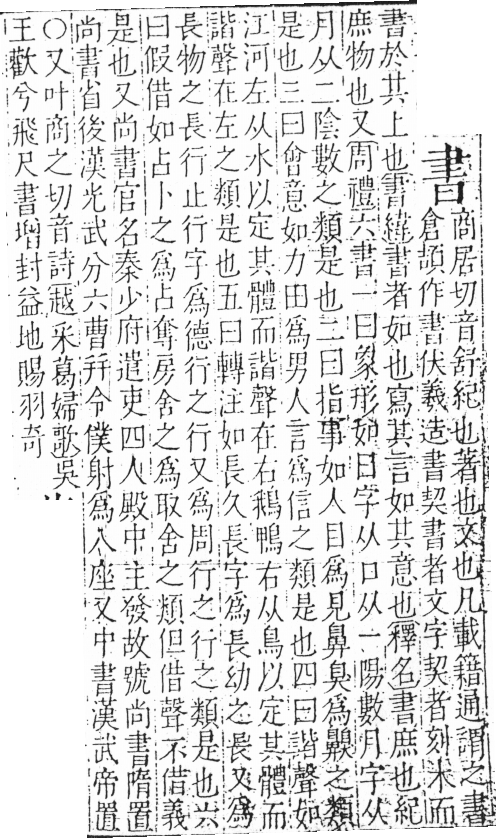 書
商居切音舒紀也著也文也凡載籍通謂之書
倉頡作書伏羲造書契書者文字契者刻木而
書於其上也書緯書者如也寫其言如其意也釋名書庶也紀
庶物也又周禮六書一曰象形如日字从口从一陽數月字从
月从二陰數之類是也二曰指事如人目爲見鼻臭爲齅之類
是也三曰會意如力田爲男人言爲信之類是也四曰諧聲如
江河左从水以定其體而諧聲在右鵝鴨右从鳥以定其體而
諧聲在左之類是也五曰轉注如長久長字爲長幼之長又爲
長物之長行止行字爲德行之行又爲周行之行之類是也六
曰假借如占卜之爲占奪房舍之爲取舍之類但借聲不借義
是也又尚書官名秦少府遣吏四人殿中主發故號尚書隋置
尚書省後漢光武分六曹幷令僕射爲八座又中書漢武帝置
○又叶商之切音詩越采葛婦歌吳
王歡兮飛尺書增封益地賜羽奇